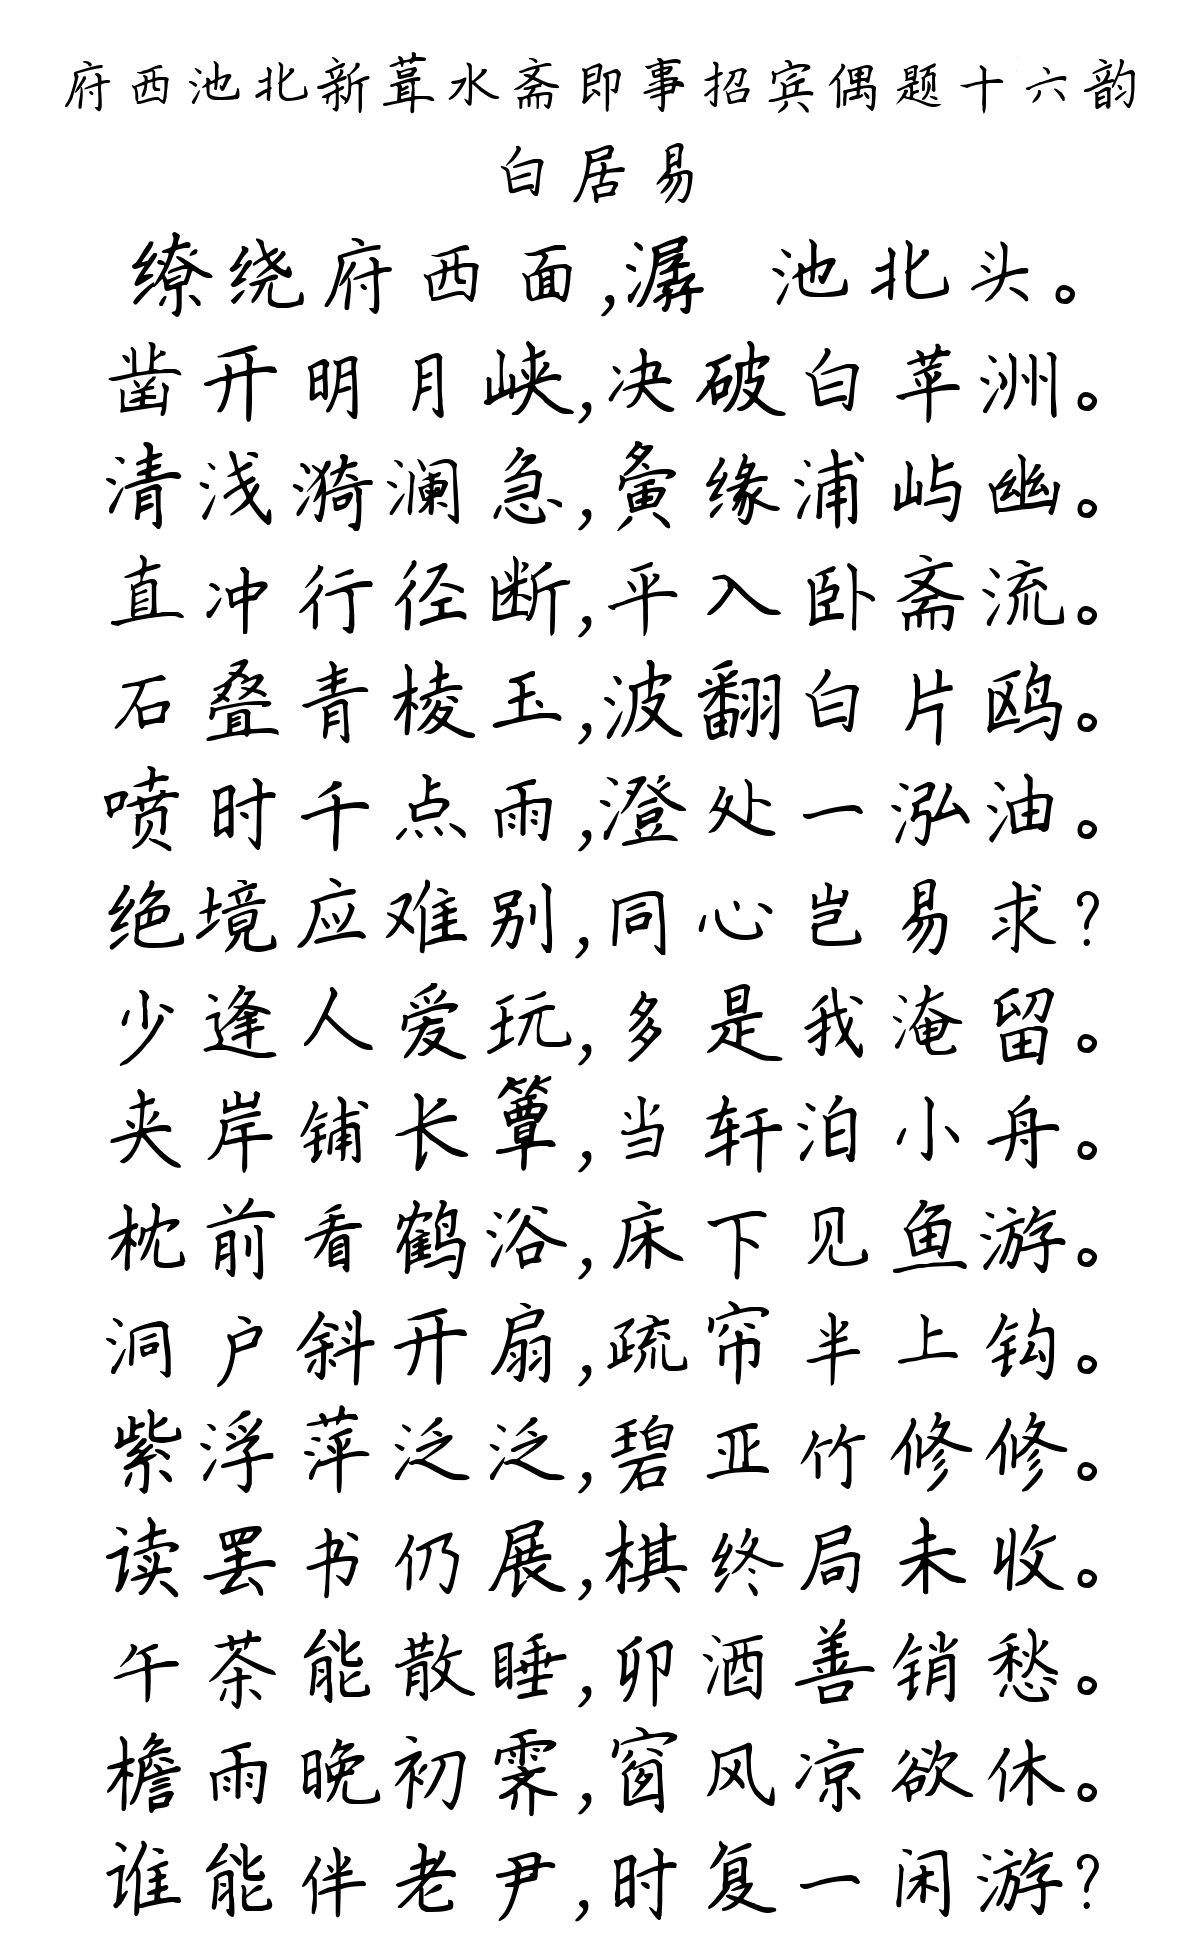 府西池北新葺水斋即事招宾偶题十六韵
白居易
缭绕府西面,潺 池北头。
凿开明月峡,决破白苹洲。
清浅漪澜急,夤缘浦屿幽。
直冲行径断,平入卧斋流。
石叠青棱玉,波翻白片鸥。
喷时千点雨,澄处一泓油。
绝境应难别,同心岂易求?
少逢人爱玩,多是我淹留。
夹岸铺长簟,当轩泊小舟。
枕前看鹤浴,床下见鱼游。
洞户斜开扇,疏帘半上钩。
紫浮萍泛泛,碧亚竹修修。
读罢书仍展,棋终局未收。
午茶能散睡,卯酒善销愁。
檐雨晚初霁,窗风凉欲休。
谁能伴老尹,时复一闲游?